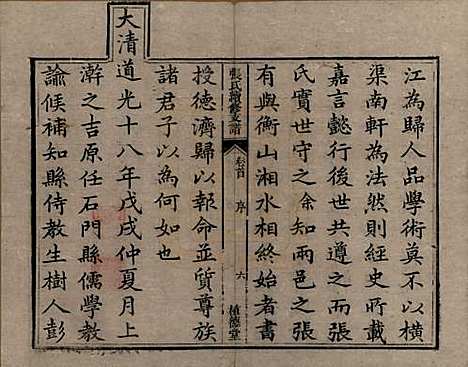 江為歸人品學術莫不以橫
渠南軒為法然則經史所載
嘉言懿行後世共遵之而張
氏寶世守之余知兩邑之張
有與衡山湘水相終始者書
張氏續修支譜 卷首 序 六 植德堂
授德濟歸以報命並質尊族
諸君子以為何如也
大清道光十八年戊戌仲夏月上
澣之吉原任石門縣儒學教
諭候補知縣侍教生樹人彭